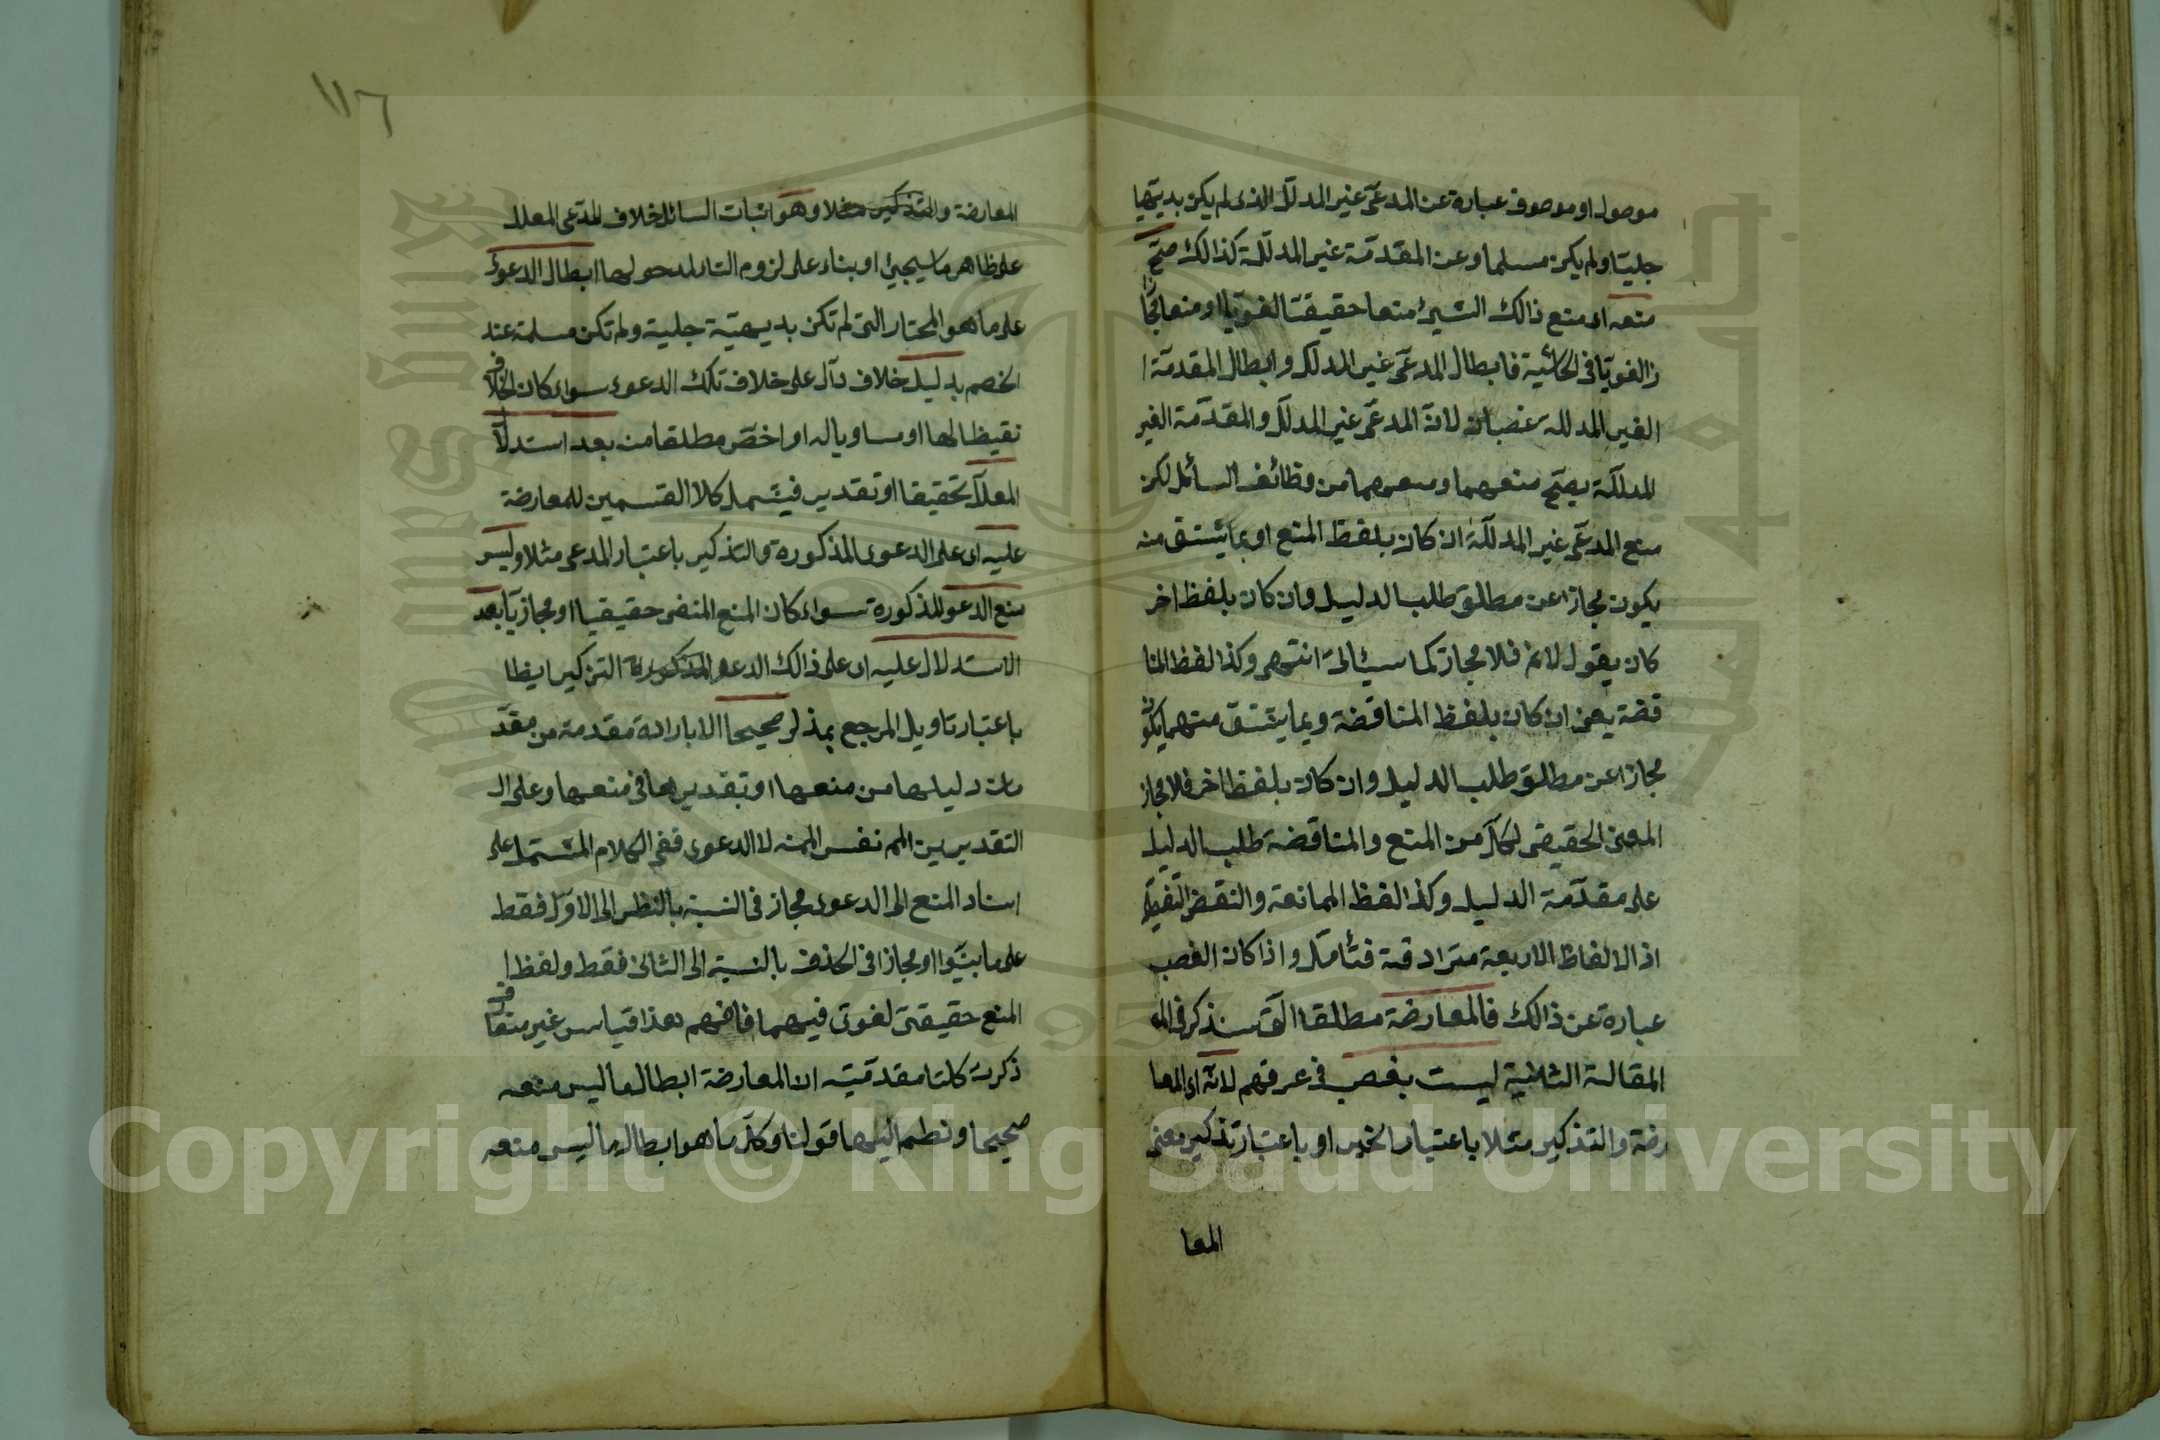 موصول او موصوف عبارة عن المدعى غير المدلل الذى لم يكن بديهيا
جليا ولم يكن مسلما وعن المقدمة غير المدللة كذالك صح
منعه اى منع ذالك الشيئ منعا حقيقيا لغويا او منعا مجا
زا لغويا فى الحاشية فابطال المدعى غير المدلل وابطال المقدمة ا
الغير المدلله غصبان لان المدعى غير المدلل والمقدمة الغير
المدللة يصح منعهما ومنعهما من وظائف السائل لكن
منع المدعى غير المدللة ان كان بلفظ المنع او بما يشتق منه
يكون مجازا عن مطلق طلب الدليل وان كان بلفظ اخر
كان يقول لانم فلا مجاز كما سيئاتى انتهى وكذا لفظ المنا
قضة يعنى ان كان بلفظ المناقضة وبما يشتق منهما يكون
مجازا عن مطلق طلب الدليل وان كان بلفظ اخر فلا مجاز
المعنى الحقيقى لكل من المنع والمناقضة طلب الدليل
على مقدمة الدليل وكذا لفظ الممانعة والنقض التفصيلى
اذ الالفاظ الاربعة مترادفة فتأمل واذا كان الغصب
عبارة عن ذالك فالمعارضة مطلقا التى ستذكر فى الم
المقالة الثانية ليست بغصب فى عرفهم لانه اى المعا
رضة والتذكير مثلا باعتبار الخبر او باعتبار تذكير معنى
المعا
١١٦
المعارضة والتذكير مثلا وهو اثبات السائل خلاف المدعى المعلل
على ظاهر ما سيجيئ او بناء على لزوم التامل حولها ابطال الدعوى
على ما هو المختار التى لم تكن بديهية جلية ولم تكن مسلمة عند
الخصم بدليل خلاف دال على خلاف تلك الدعوى سواء كان الخلاف
نقيظا لها او مساويا له او اخص مطلقا من بعد استدلا
المعلل تحقيقا او تقدير فيشمل كلا القسمين للمعارضة
عليه اى على الدعوى المذكورة والتذكير باعتبار المدعى مثلا وليس
منع الدعو المذكورة سواء كان المنع المنفى حقيقيا او مجازيا بعد
الاستدلال عليه اى على ذالك الدعو المذكورة التذكير ايظا
باعتبار تاويل المرجع بمذكر صحيحا الا بارادة مقدمة من مقد
مات دليلها من منعها او بتقديرها فى منعها وعلى ال
التقديرين المم نفس المنه لا الدعوى ففى الكلام المشتمل على
اسناد المنع الى الدعوى مجاز فى النسبة بالنظر الى الاول فقط
على ما بينوا او مجازا فى الحذف بالنسبة الى الثانى فقط ولفظ ا
المنع حقيقى لغوى فيهما فافهم هذا قياس غير متعارف
ذكرت كلتا مقدمتيه ان المعارضة ابطال ما ليس منعه
صحيحا ونظم اليها قولنا وكل ما هو ابطال ما ليس منعه